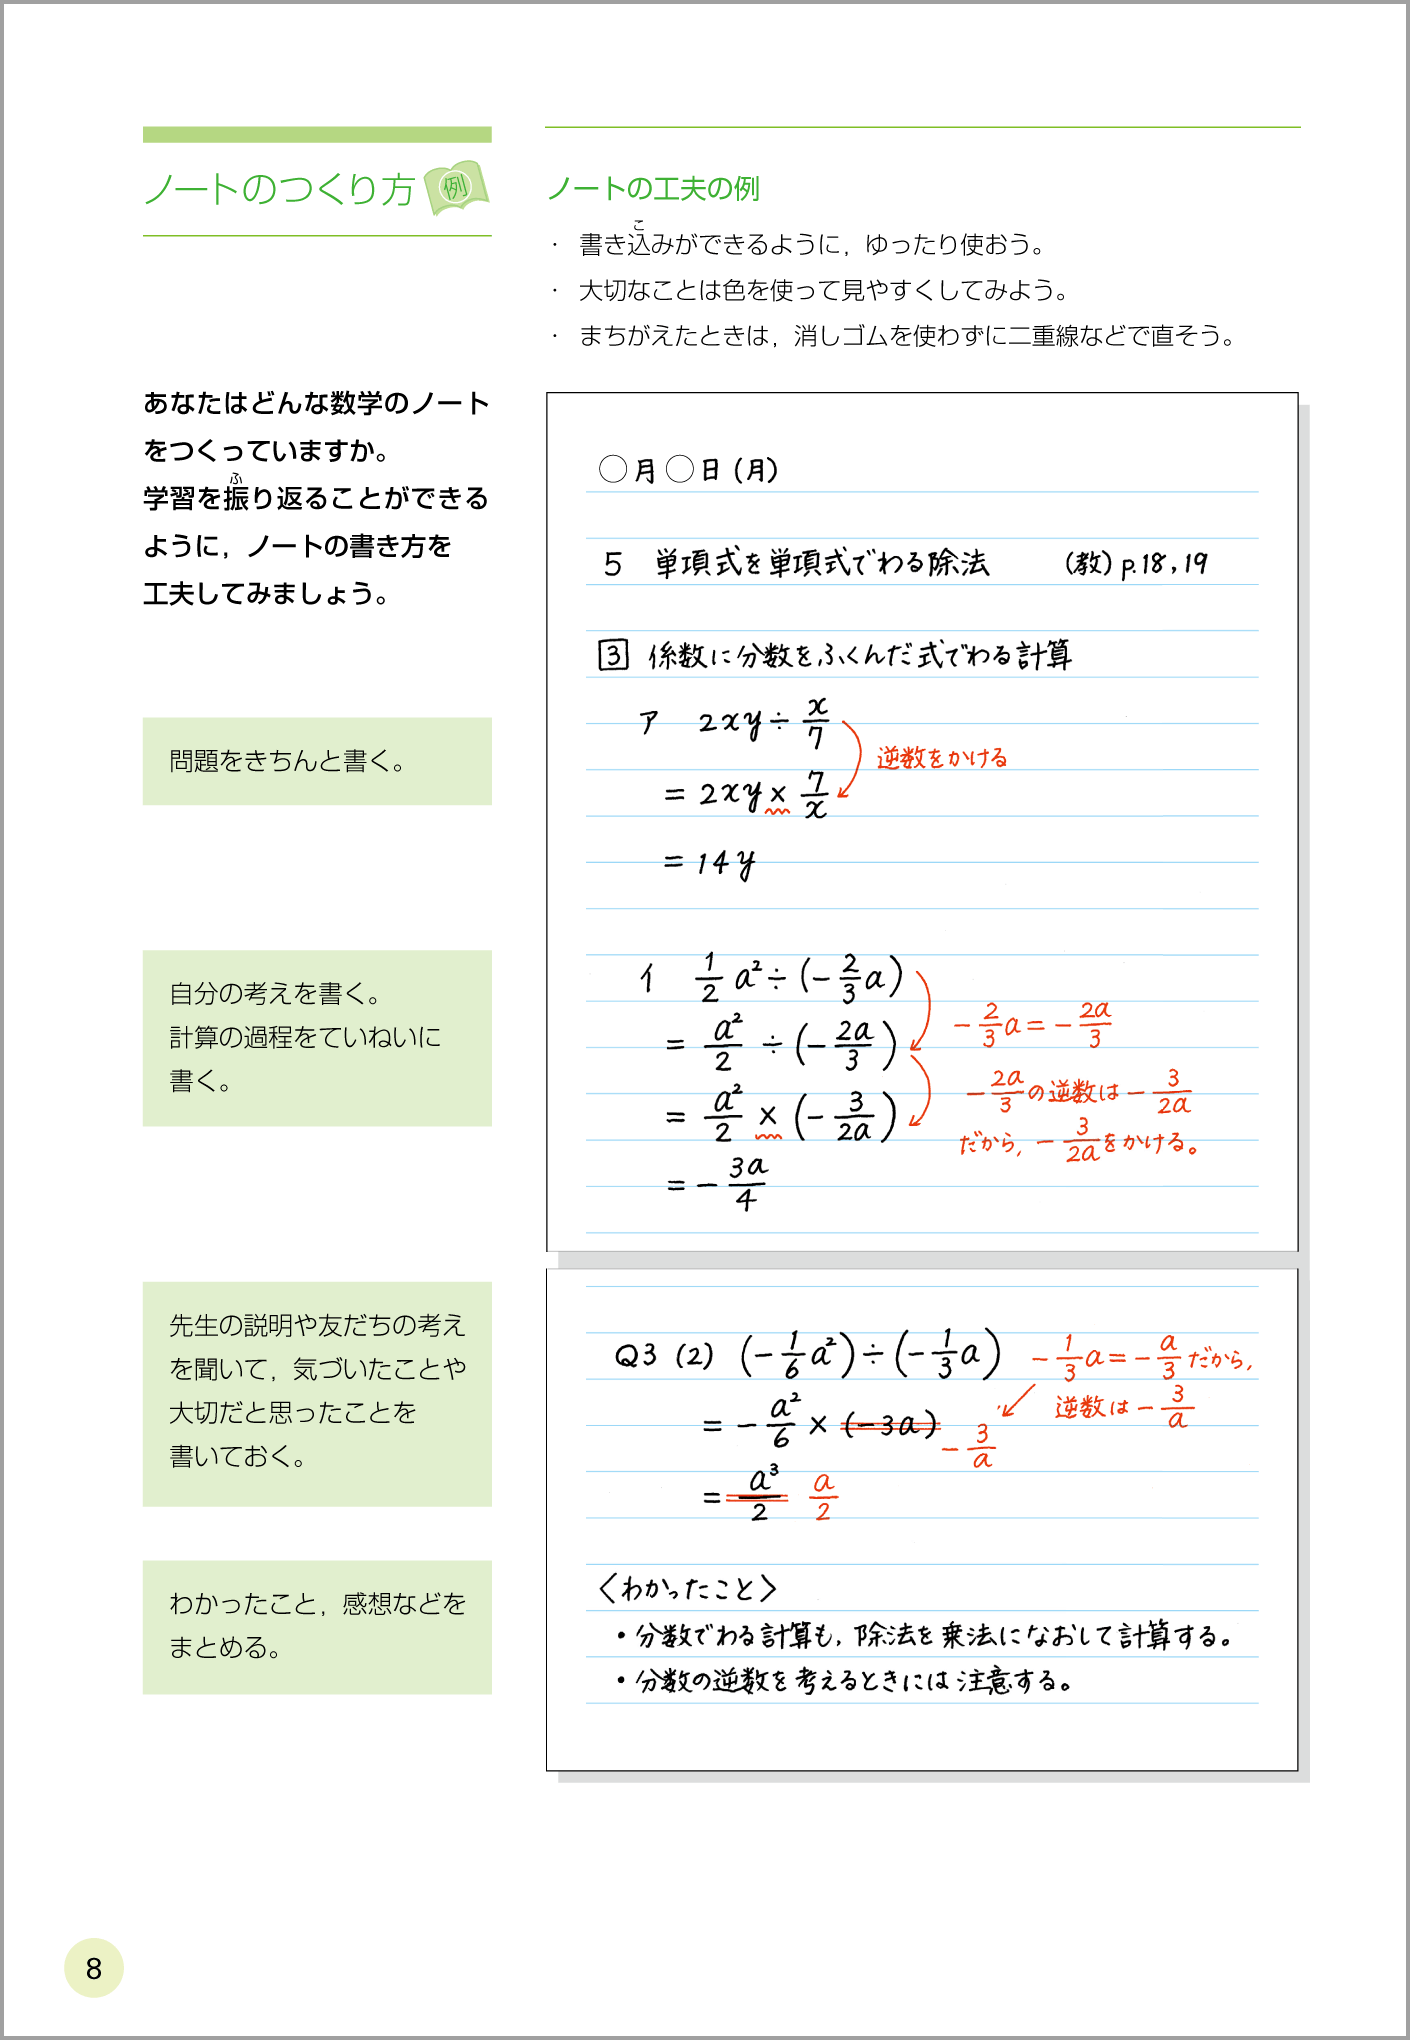 ノートのつくり方 例
あなたはどんな数学のノート
をつくっていますか。
学習を振り返ることができる
ふ
ように，ノートの書き方を
工夫してみましょう。
ノートの工夫の例
こ
・ 書き込みができるように，ゆったり使おう。
・ 大切なことは色を使って見やすくしてみよう。
・ まちがえたときは，消しゴムを使わずに二重線などで直そう。
問題をきちんと書く。
自分の考えを書く。
計算の過程をていねいに
書く。
先生の説明や友だちの考え
を聞いて，気づいたことや
大切だと思ったことを
書いておく。
わかったこと，感想などを
まとめる。
○月○日(月)
5 単項式を単項式でわる除法 (教)p.18,19
3 係数に分数をふくんだ式でわる計算
ア 2xy÷x/7
逆数をかける
= 2xy×7/x
= 14y
イ 1/2 a²÷(-2/3 a)
-2/3 a=-2a/3
= a²/2÷(-2a/3)
-2a/3の逆数は-3/2a
= a²/2×(-3/2a)
だから，-3/2aをかける。
=-3a/4
Q3 (2) (-1/6 a²)÷(-1/3 a)
-1/3 a=-a/3だから，
逆数は-3/a
=-a²/6×(-3a) -3/a
= a³/2 a/2
〈わかったこと〉
・分数でわる計算も，除法を乗法になおして計算する。
・分数の逆数を考えるときには注意する。
8